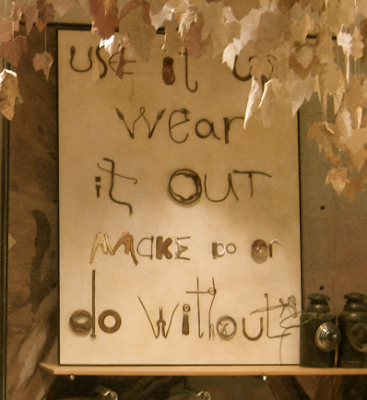 use it up
wear
it OUT
MAKE DO or
do without